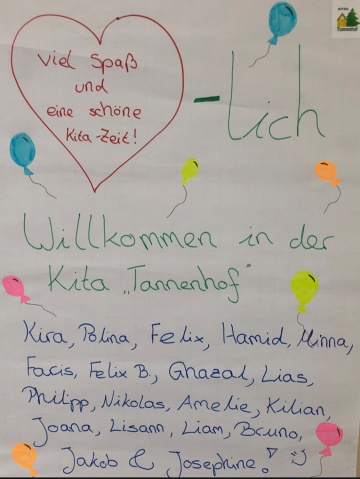 Viel Spaß
und
eine schöne
Kita-Zeit!
- lich
Willkommen in der
Kita „Tannenhof"
Kira, Polina, Felix, Hamid, Minna,
Facis, Felix B., Ghazal, Lias,
Philipp, Nikolas, Amelie, Kilian,
Joana, Lisann, Liam, Bruno,
Jakob & Josephine!
Tannenhof